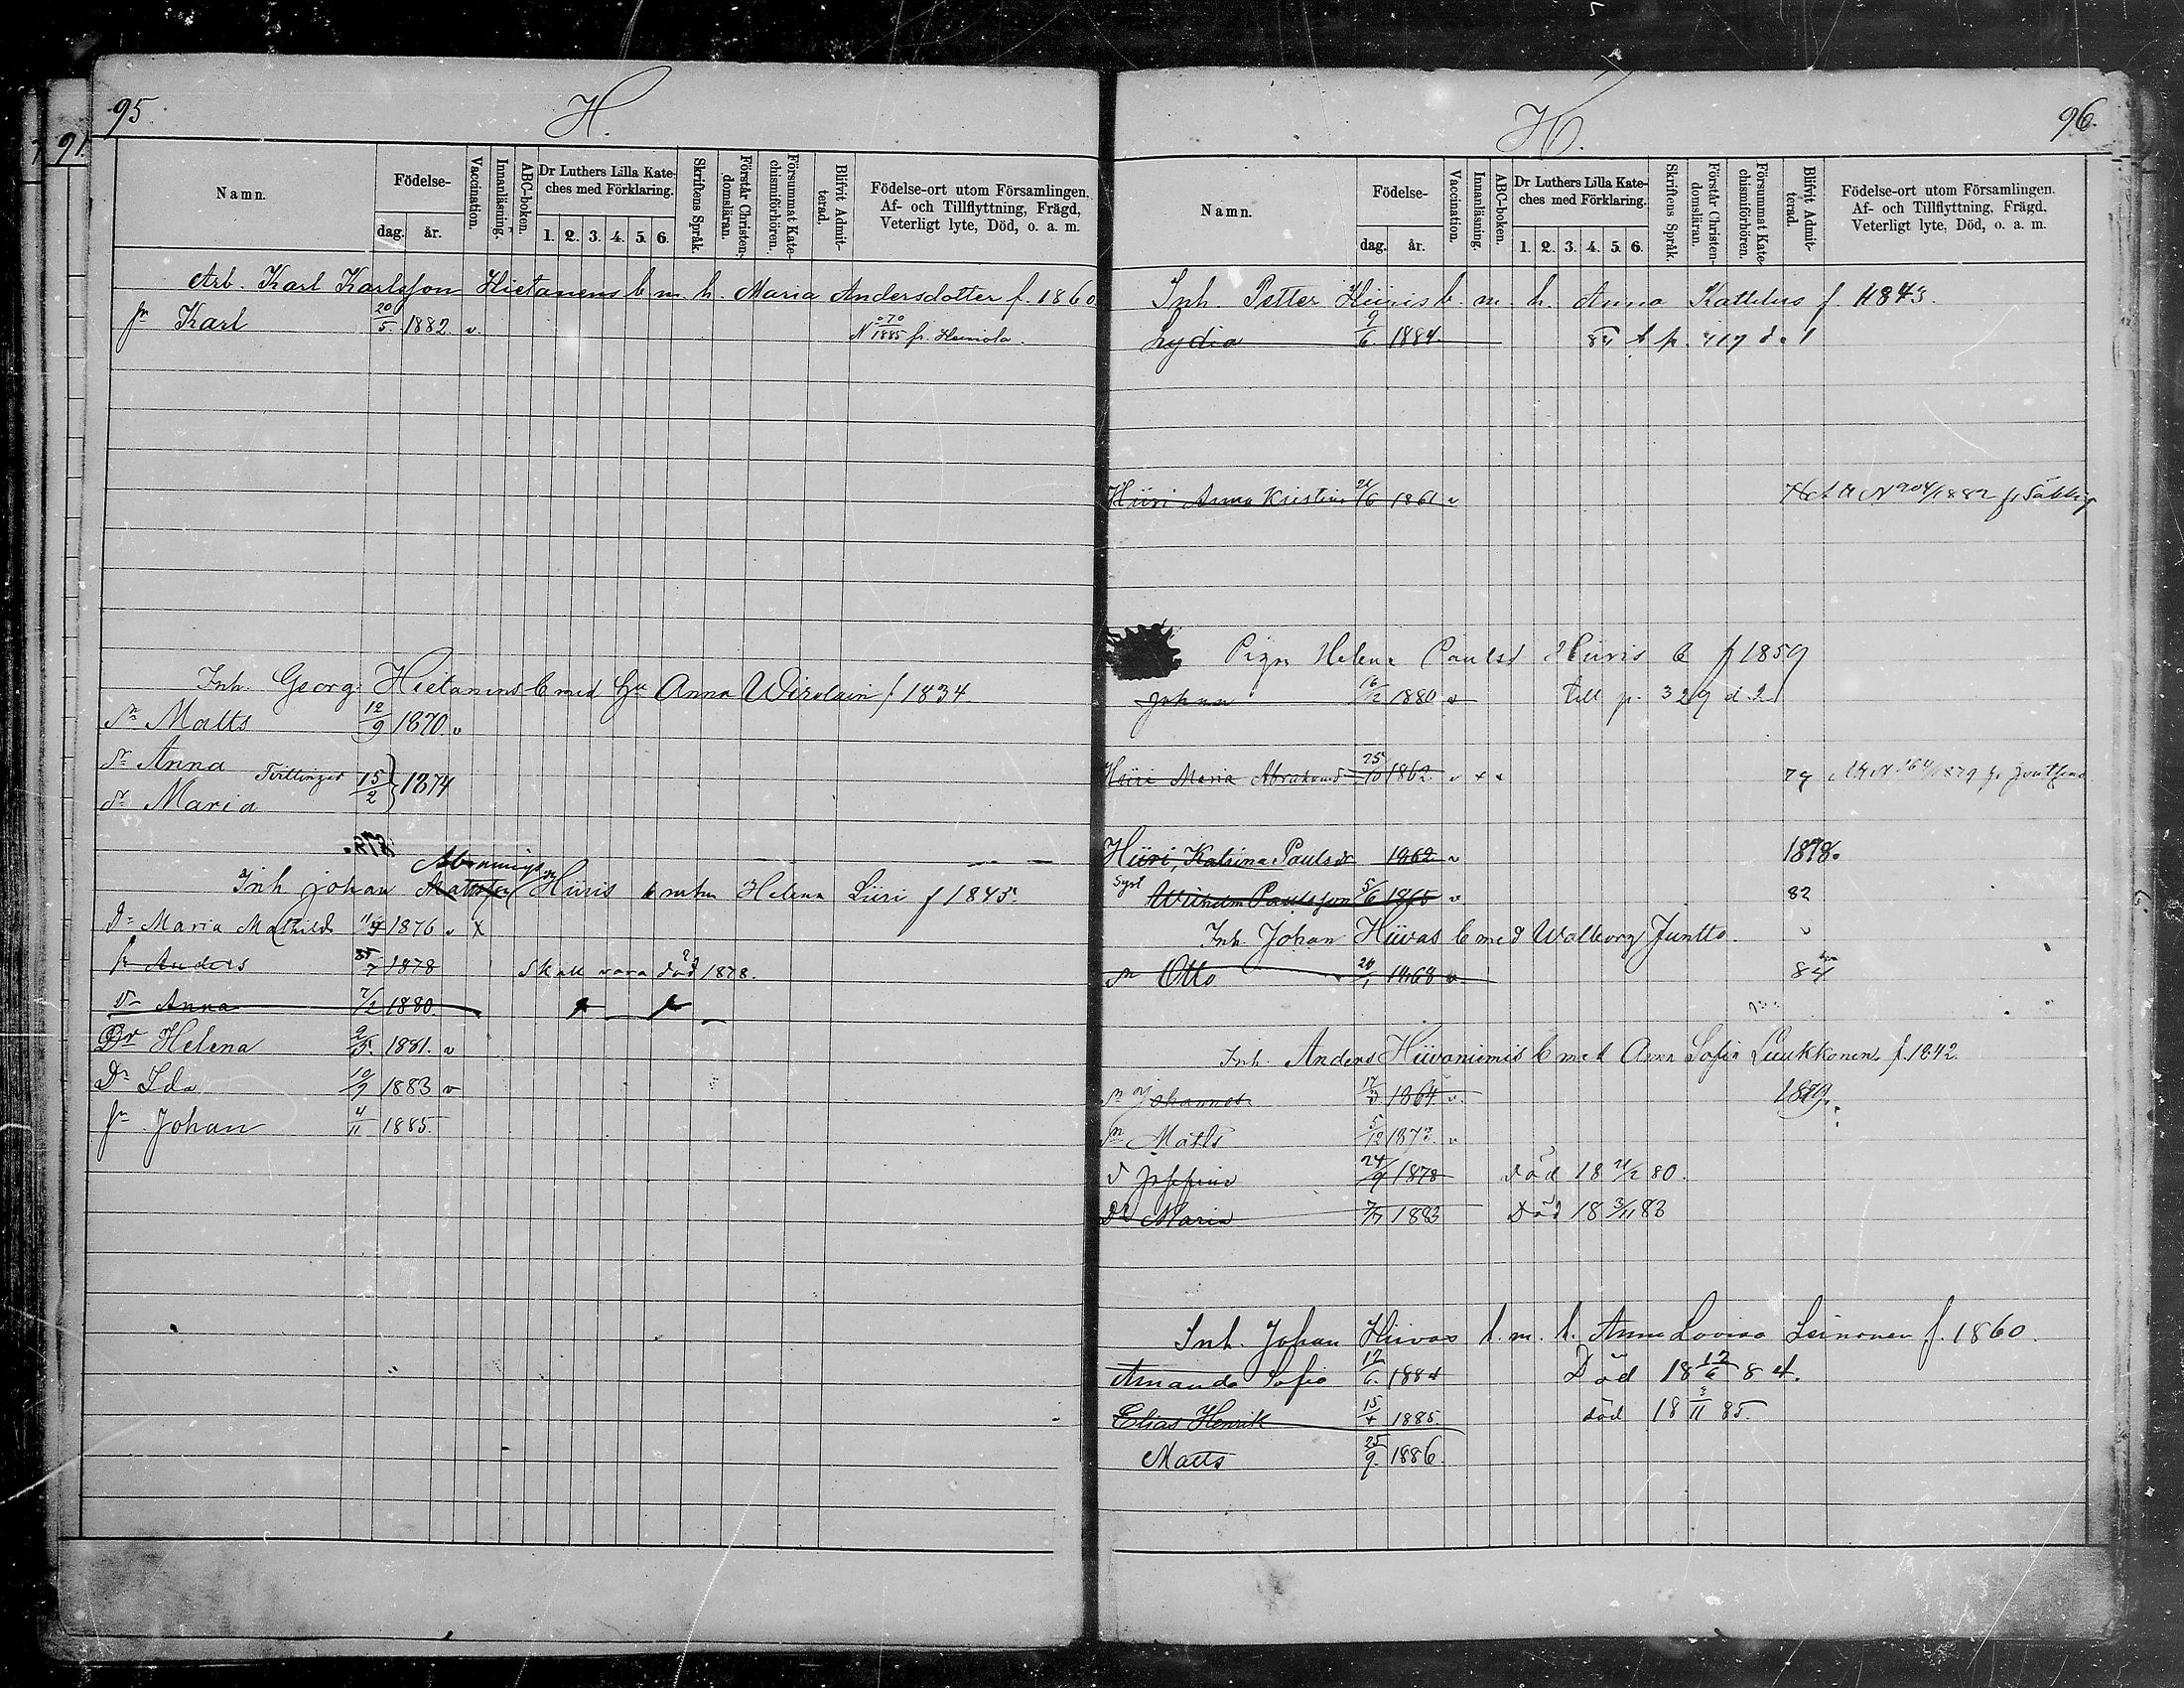 95.
H.
91.
Namn.
Födelse-
dag.
år.
Vaccination.
Innanläsning.
ABC-boken.
Dr Luthers Lilla Kate-
ches med Förklaring.
1. 2. 3. 4. 5. 6.
Skriftens Språk.
Förstår Christen-
domsläran.
Försummat Kate-
chismiförhören.
Blifvit Admit-
terad.
Födelse-ort utom Församlingen.
Af- och Tillflyttning, Frägd,
Veterligt lyte, Död, o. a. m.
Arb. Karl Karlsson Hietanens b m. h. Maria Andersdotter f. 1860
sn Karl 20/5. 1882. v. N 070/1885 fr. Heinola.
Inh. Georg Hietanens b med Hu Anna Wirolain f 1834
Sn Matts 12/9 1870 v
Dr Anna Tvillingar 15/2 } 1874
Dr Maria
Inh johan Hüris b m hu Helena Liiri f 1845.
Dr Maria Mathilda 11/4 1876 v X
sn Anders 25/7 1878 Skall vara död 1878.
Dr Anna 7/2 1880.
Dr Helena 2/5. 1881. v
Dr Ida 10/9 1883 v
sn Johan 4/11 1885.
H.
96.
Namn.
Födelse-
dag.
år.
Vaccination.
Innanläsning.
ABC-boken.
Dr Luthers Lilla Kate-
ches med Förklaring.
1. 2. 3. 4. 5. 6.
Skriftens Språk.
Förstår Christen-
domsläran.
Försummat Kate-
chismiförhören.
Blifvit Admit-
terad.
Födelse-ort utom Församlingen.
Af- och Tillflyttning, Frägd,
Veterligt lyte, Död, o. a. m.
Inh. Petter Hiiris b. m. h. Anna Kattelus f 1843.
Lydia 9/6. 1884. 84 t p. 419 d. 1
Hiiri Anna Kristina 21/6 1861 v N 204/1882 fr Säkkij
Pigan Helena Paulsd Hiiris b f 1859
Johan 16/2 1880 v till p. 329 d 2
Hiiri Maria Abrahamsd 25/10 1862 v x x 79 N 164/1879 fr
Hiiri, Katrina Paulsdr 1862 v 1878.
Syst Wilhelm Paulsson 5/6 1865 v 82
Inh. Johan Hiivas b med Walborg Juntto. v
sn Otto 20/1 1868 v 84
Inh. Anders Hiivaniemis b med Anna Sofia Luukkonen f. 1842.
sn Johannes 17/3 1864 v. 1879.
sn Matts 5/12 1873 v
D Josefina 24/9 1878 död 18 21/2 80.
Dr Maria 7/7 1883 Död 18 3/11 83
Inh. Johan Hiivas b. m. h. Anna Lovisa Leinonen f. 1860.
Amanda Sofia 12/6. 1884 Död 18 12/6 84.
Elias Henrik 15/4 1885. död 18 3/11 85.
Matts 25/9. 1886.